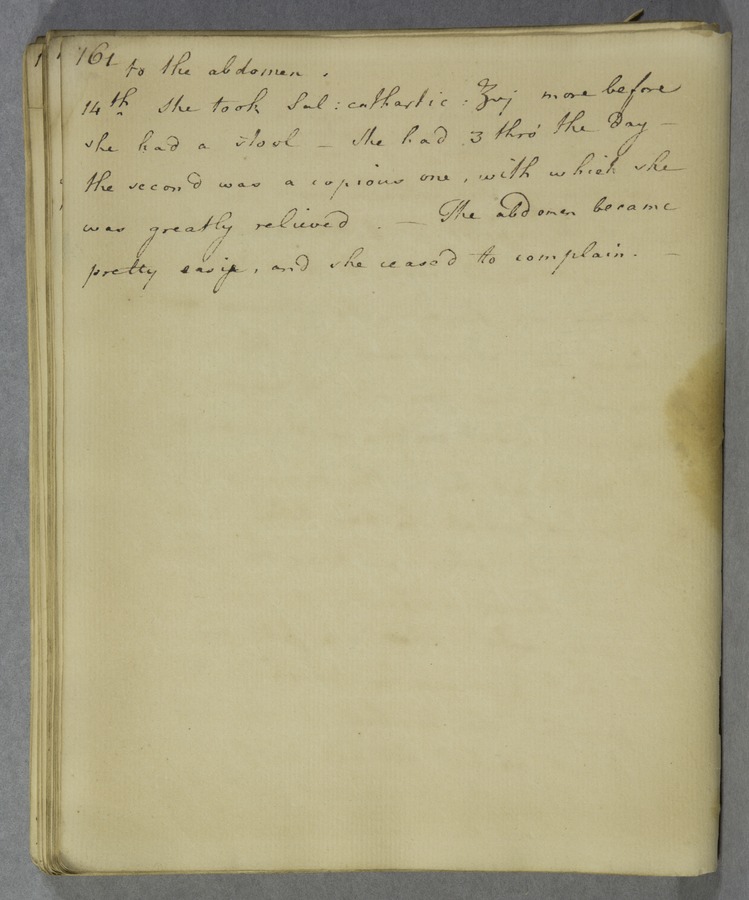 161
to the abdomen.
14th she took Sal: cathartic: ʒvj more before
she had a stool — she had 3 thro' the Day —
the second was a copious one, with which she
was greatly relieved. — The abdomen became
pretty easie, and she ceased to complain. —